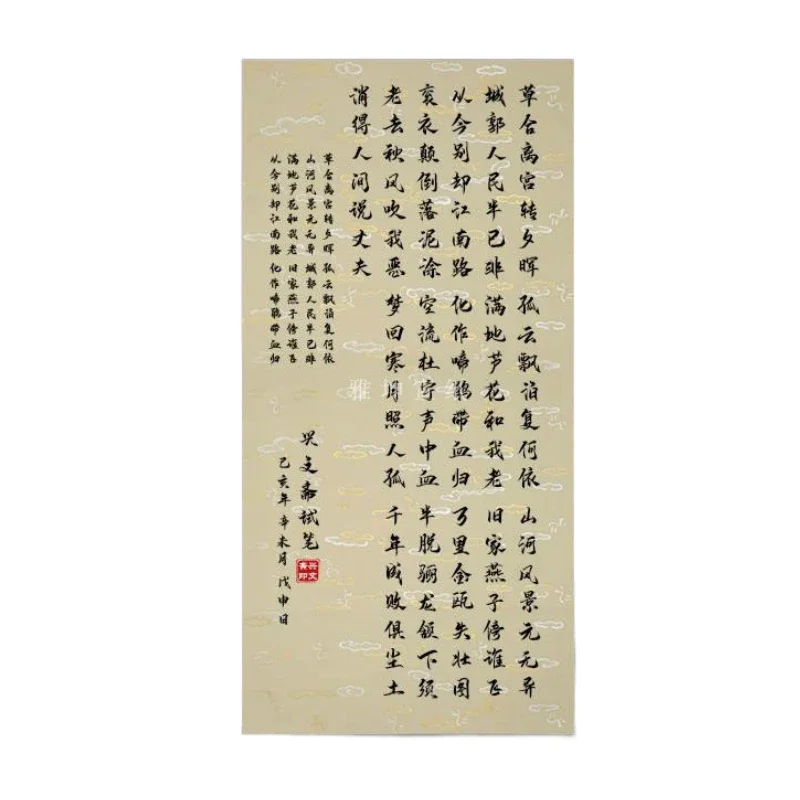 草合离宫转夕晖 孤云飘泊复何依 山河风景元无异
城郭人民半已非 满地芦花和我老 旧家燕子傍谁飞
从今别却江南路 化作啼鹃带血归 万里金瓯失壮图
衮衣颠倒落泥涂 空流杜宇声中血 半脱骊龙颔下须
老去秋风吹我恶 梦回寒月照人孤 千年成败俱尘土
消得人间说丈夫
草合离宫转夕晖 孤云飘泊复何依
山河风景元无异 城郭人民半已非
满地芦花和我老 旧家燕子傍谁飞
从今别却江南路 化作啼鹃带血归
兴文斋试笔
己亥年 辛未月 戊申日
兴文斋印